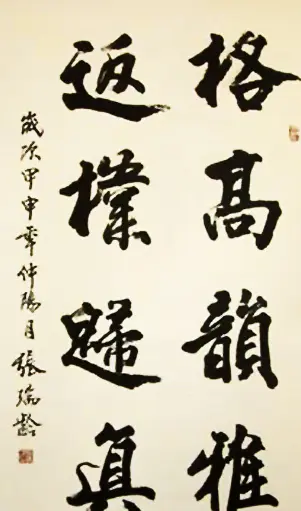 格高韻雅
返樸歸真
歲次甲申年仲陽月張瑞齡